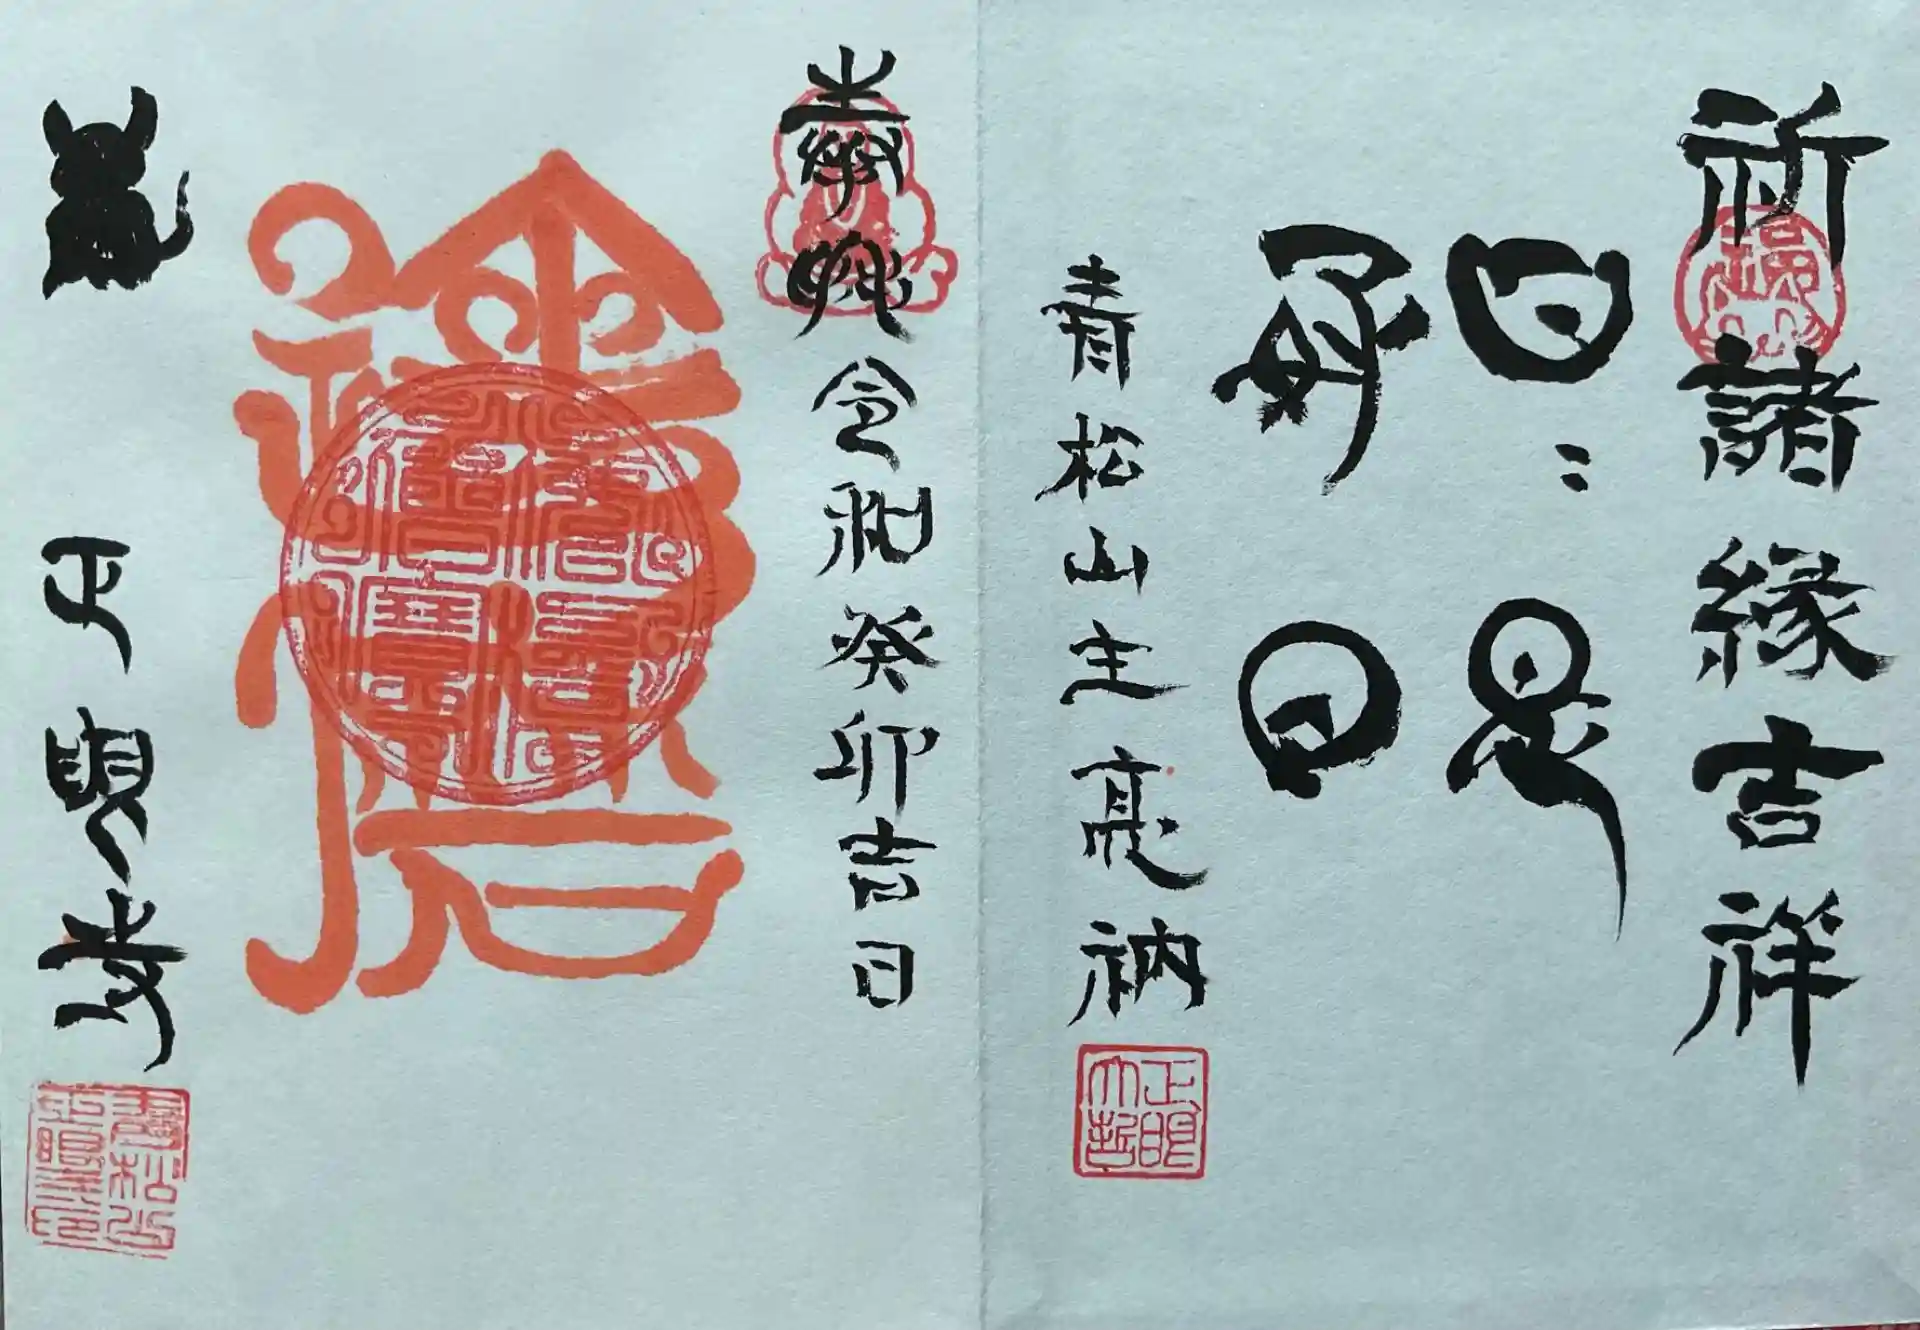 祈諸縁吉祥
日々是
好日
青松山主亮衲
正眼
大哲
奉拝
令和癸卯吉日
正眼寺